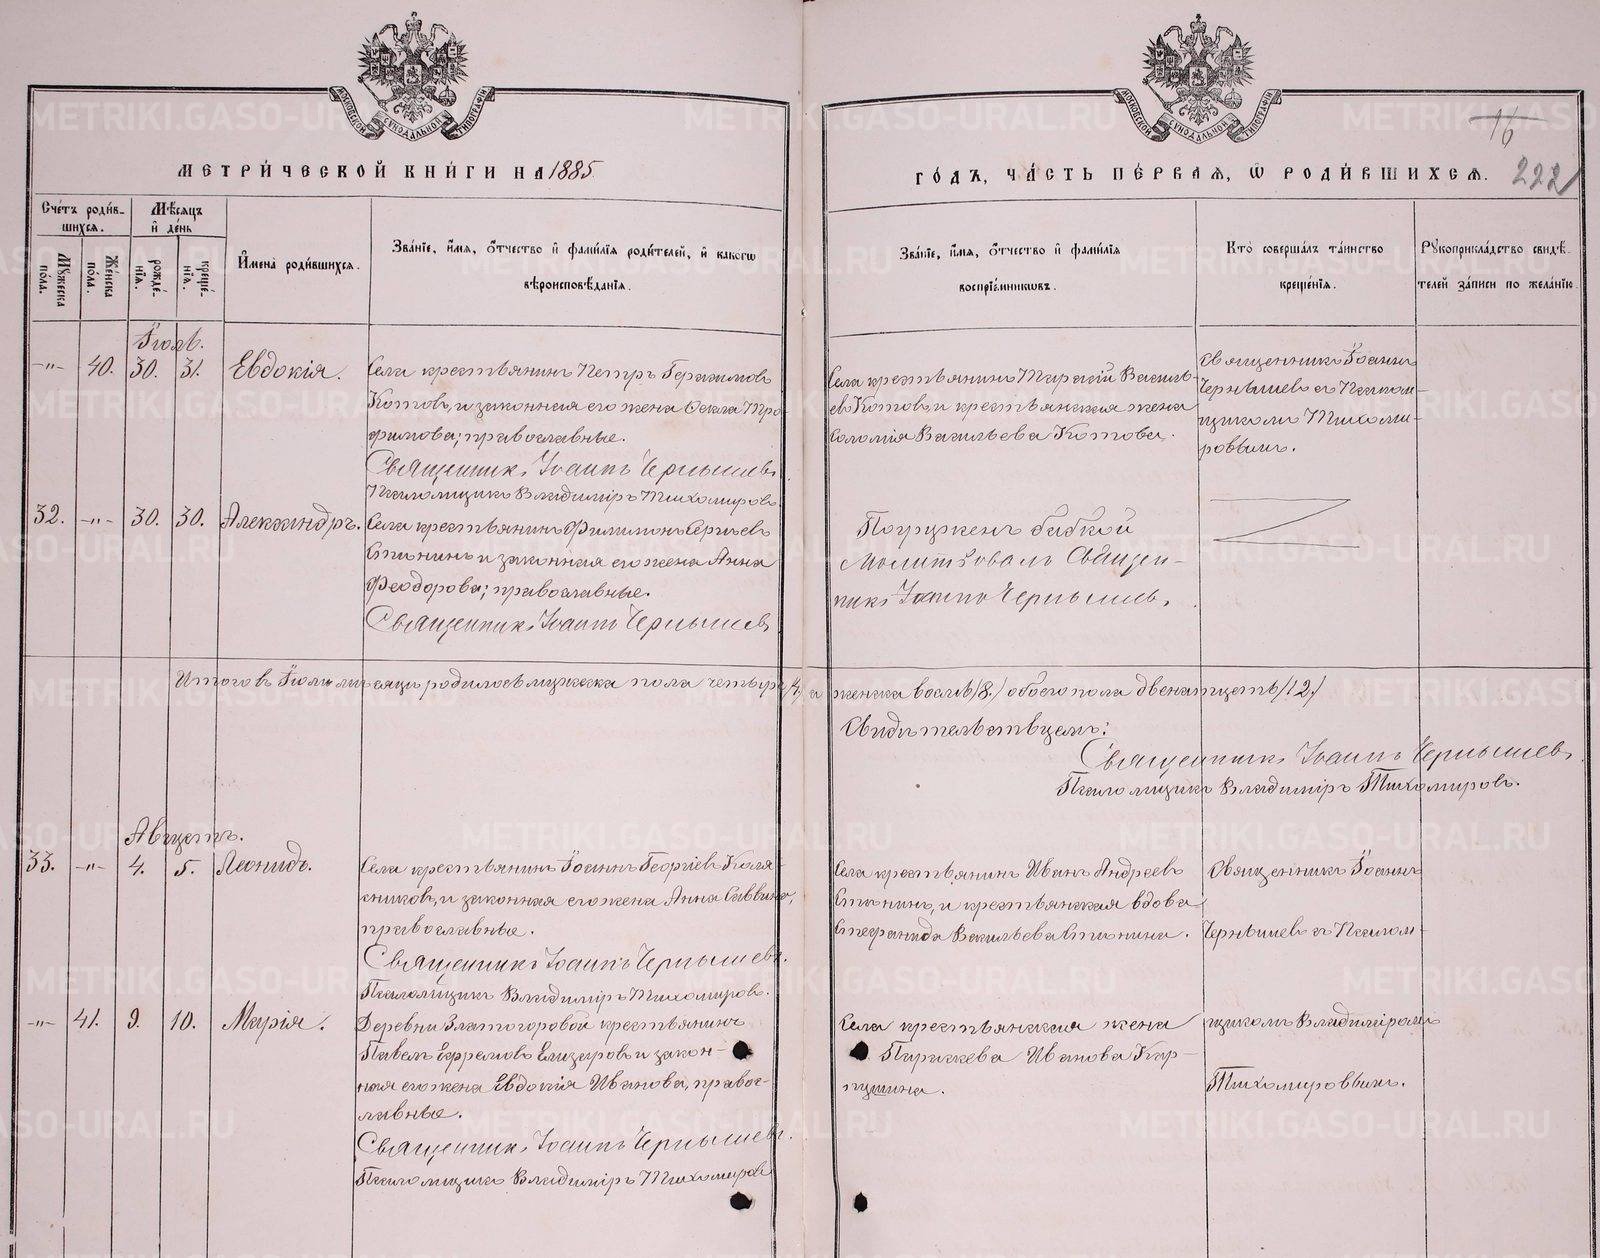 МЕТРИ́ЧЕСКОЙ КНИ́ГИ НА 1885
ГО́ДЪ, ЧА́СТЬ ПЕ́РВАЯ, Ѿ РОДИ́ВШИХСЯ.
16
222
Сче́тъ роди́в-
шихся.
Мѣ́сяцъ
и҆ де́нь
Му́жеска
по́ла.
Же́нска
по́ла.
рожде́-
нїя.
креще́-
нїя.
И҆мена̀ роди́вшихся.
Зва́нїе, и҆́мя, ѻ҆́тчество и҆ фами́лїя роди́телей, и҆ како́гѡ
вѣроисповѣ́данїя.
Зва́нїе, и҆́мя, ѻ҆́тчество и҆ фами́лїя
воспрїе́мниковъ.
Кто̀ соверша́лъ та́инство
креще́нїя.
Рукоприкла́дство свидѣ́-
телей за́писи по жела́нїю.
Іюль.
-"- 40. 30. 31. Евдокія.
Села крестьянинъ Петръ Герасимовъ
Котовъ, и законная его жена Ѳекла Тро-
фимова; православные.
Священникъ Іоаннъ Чернышевъ
Псаломщикъ Владиміръ Тихомировъ
Села крестьянинъ Василь-
евъ Котовъ и крестьянская жена
Соломія Васильева Котова.
Священникъ Іоаннъ
Чернышевъ съ Псалом-
щикомъ Тихоми-
ровымъ.
32. -"- 30. 30. Александръ.
Села крестьянинъ Филимонъ Сергѣевъ
и законная его жена Анна
Ѳеодорова; православные.
Священникъ Іоаннъ Чернышевъ
Погруженъ бабкой
Молитвовалъ Священ-
никъ Іоаннъ Чернышевъ.
Итого въ Іюлѣ мѣсяцѣ родилось мужеска пола четыре /4/, а женска восемь /8/ обоего пола двенатцать /12/
Свидѣтельствуемъ:
Священникъ Іоаннъ Чернышевъ
Псаломщикъ Владиміръ Тихомировъ.
Августъ.
33. -"- 4. 5. Леонидъ.
Села крестьянинъ Іоаннъ Георгіевъ Коля-
сниковъ, и законная его жена Анна Саввина,
православные.
Священникъ Іоаннъ Чернышевъ.
Псаломщикъ Владиміръ Тихомировъ.
Села крестьянинъ Иванъ Андреевъ
и крестьянская вдова
Стефанида Васильева
Священникъ Іоаннъ
Чернышевъ съ Псалом-
-"- 41. 9. 10. Марія.
Деревни Златогоровой крестьянинъ
Павелъ Ефремовъ Елизаровъ и закон-
ная его жена Евдокія Иванова, правос-
лавные.
Священникъ Іоаннъ Чернышевъ.
Псаломщикъ Владиміръ Тихомировъ
Села крестьянская жена
Параскева Иванова Кар-
пушина.
щикомъ Владиміромъ
Тихомировымъ.
METRIKI.GASO-URAL.RU